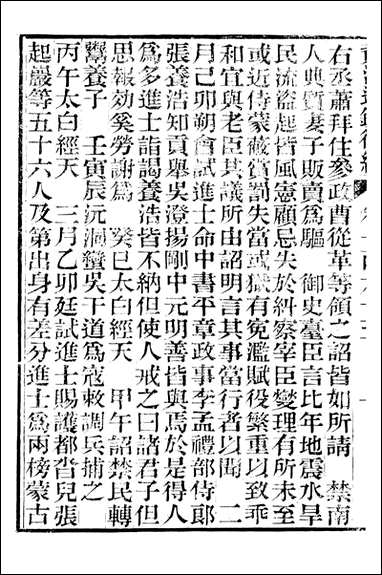 右丞蕭拜住參政曹從革等領之詔皆如所請　禁南
人典質妻子販賣爲驅　御史臺臣言比年地震水旱
民流盜起皆風憲顧忌失於糾察宰臣燮理有所未至
或近侍蒙蔽賞罰失當或獄有冤濫賦役繁重以致乖
和宜與老臣共議所由詔明言其事當行者以聞　二
月己卯朔會試進士命中書平章政事李孟禮部侍郎
張養浩知貢舉吳澄揚剛中元明善皆與焉於是得人
爲多進士詣謁養浩皆不納但使人戒之曰諸君子但
思報効奚勞謝爲　癸巳太白經天　甲午詔禁民轉
鬻養子　壬寅辰沅洞蠻吳干道爲寇敕調兵捕之
丙午太白經天　三月乙卯廷試進士賜護都沓兒張
起巖等五十六人及第出身有差分進士爲兩榜蒙古